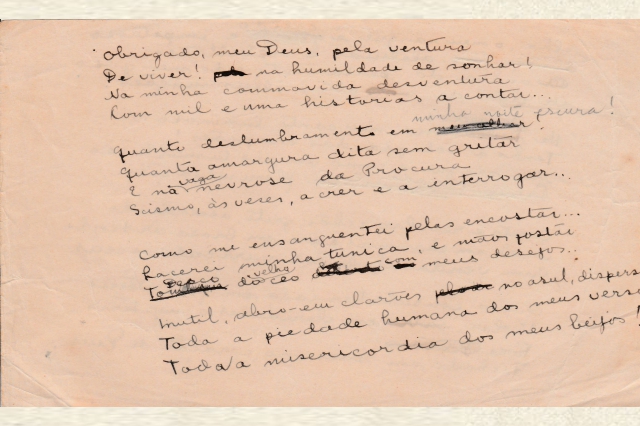 Obrigado, meu Deus, pela ventura
De viver! na humildade de sonhar!
Na minha commovida desventura
Com mil e uma historias a contar...
minha noite escura!
Quanto deslumbramento em meu olhar!
Quanta amargura dita sem gritar
vaga
E na nevrose da Procura
Scismo, às vezes, a crer e a interrogar...
Como me ensanguentei pelas encostas...
Lacerei minha tunica, e mãos postas
velho
do céo meus desejos..
Inutil, abro-em clarões no azul, dispers
Toda a piedade humana dos meus vers
Toda a misericordia dos meus beijos!